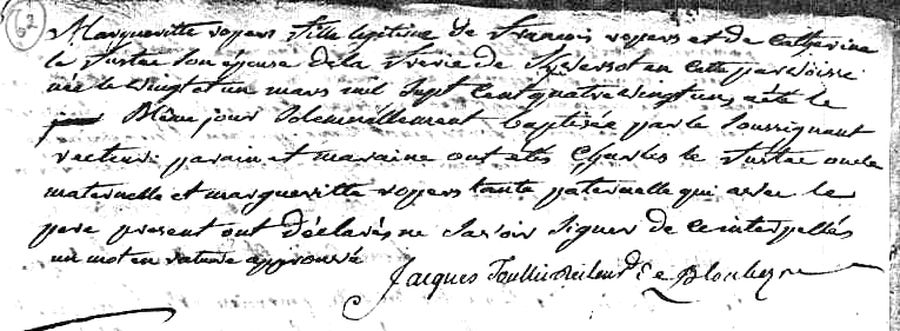 62
Margueritte voyers fille legitime de francois voyers et de catherine
le Tustae son épouse de la freve de en cette parroisse
née le vingt et un mars mil sept cent quatre vingt un, a été le
même jour solemnellement baptisée par le soussignant
recteur: parain et maraine ont étés Charles le Tustae oncle
maternelle et margueritte voyers tante paternelle qui avec le
pere present ont déclarés ne savoir signer de ce interpellés
un mot en rature approuvé
Jacques